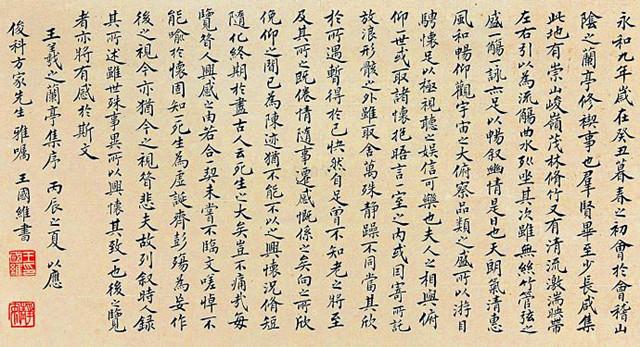 永和九年歲在癸丑暮春之初會於會稽山
陰之蘭亭修禊事也羣賢畢至少長咸集
此地有崇山峻嶺茂林脩竹又有清流激湍暎帶
左右引以為流觴曲水列坐其次雖無絲竹管弦之
盛一觴一詠亦足以暢叙幽情是日也天朗氣清惠
風和暢仰觀宇宙之大俯察品類之盛所以游目
騁懷足以極視聽之娛信可樂也夫人之相與俯
仰一世或取諸懷抱晤言一室之內或因寄所託
放浪形骸之外雖取舍萬殊靜躁不同當其欣
於所遇暫得於己怏然自足曾不知老之將至
及其所之既倦情隨事遷感慨係之矣向之所欣
俛仰之間已為陳迹猶不能不以之興懷況脩短
隨化終期於盡古人云死生之大矣豈不痛哉每
覽昔人興感之由若合一契未嘗不臨文嗟悼不
能喻於懷固知一死生為虛誕齊彭殤為妄作
後之視今亦猶今之視昔悲夫故列叙時人錄
其所述雖世殊事異所以興懷其致一也後之覽
者亦將有感於斯文
王羲之蘭亭集序 丙辰之夏 以應
俊科方家先生 雅囑 王國維書